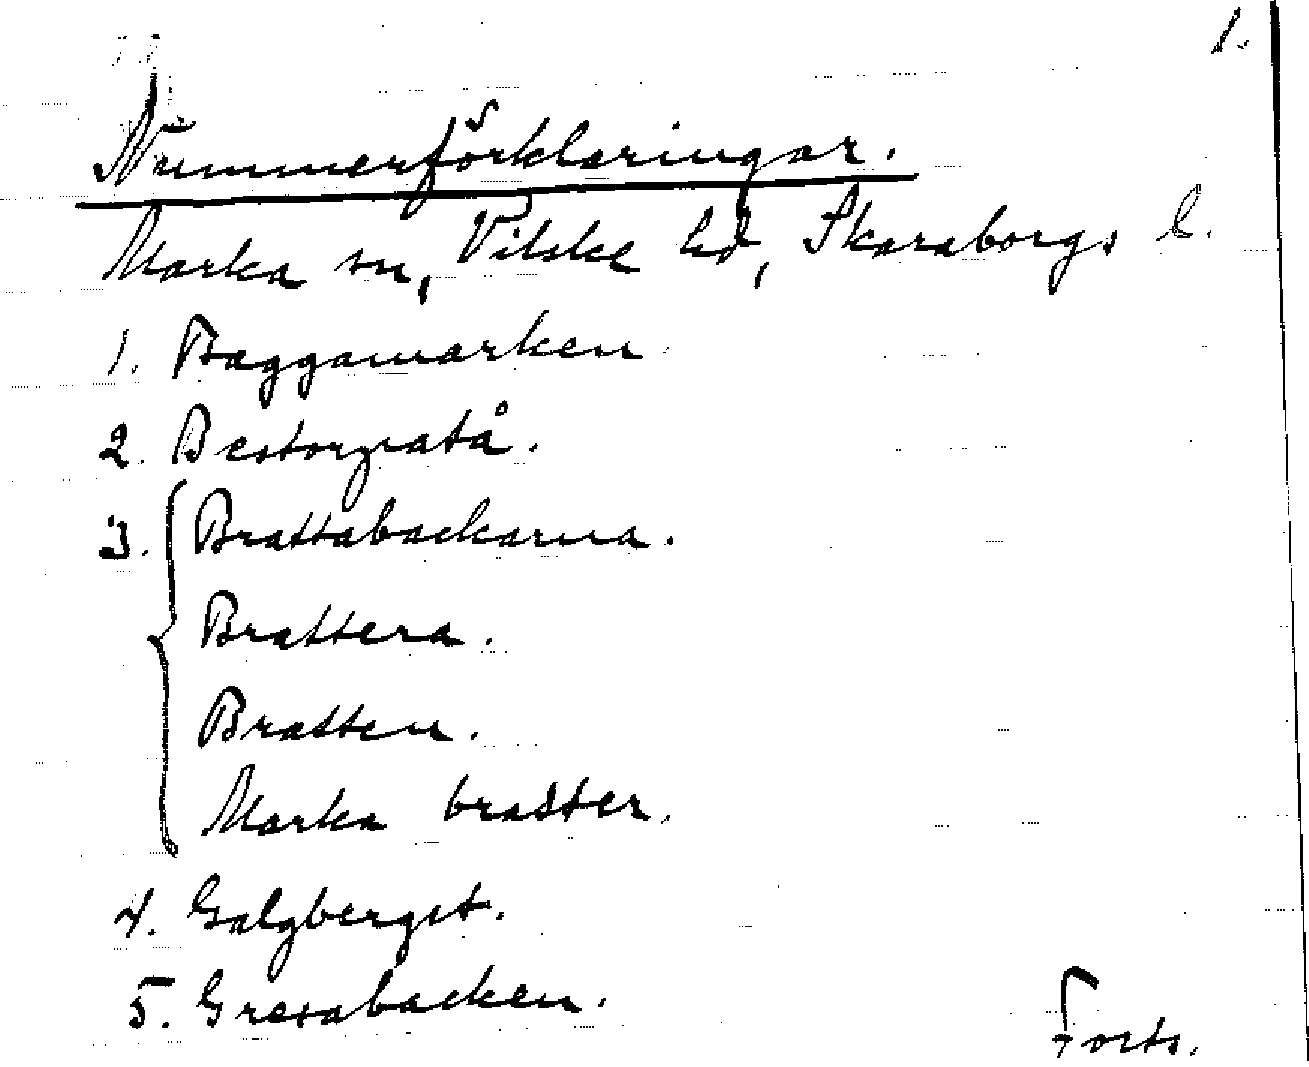 1.
Nummerförklaringar.
Marka sn, Vilske hd, Skaraborgs l.
1. Baggamarken
2.
3. Brattabackarna.
Brattera.
Bratten.
Marka bratter.
4. Galgberget.
5. Gretabacken.
Forts.